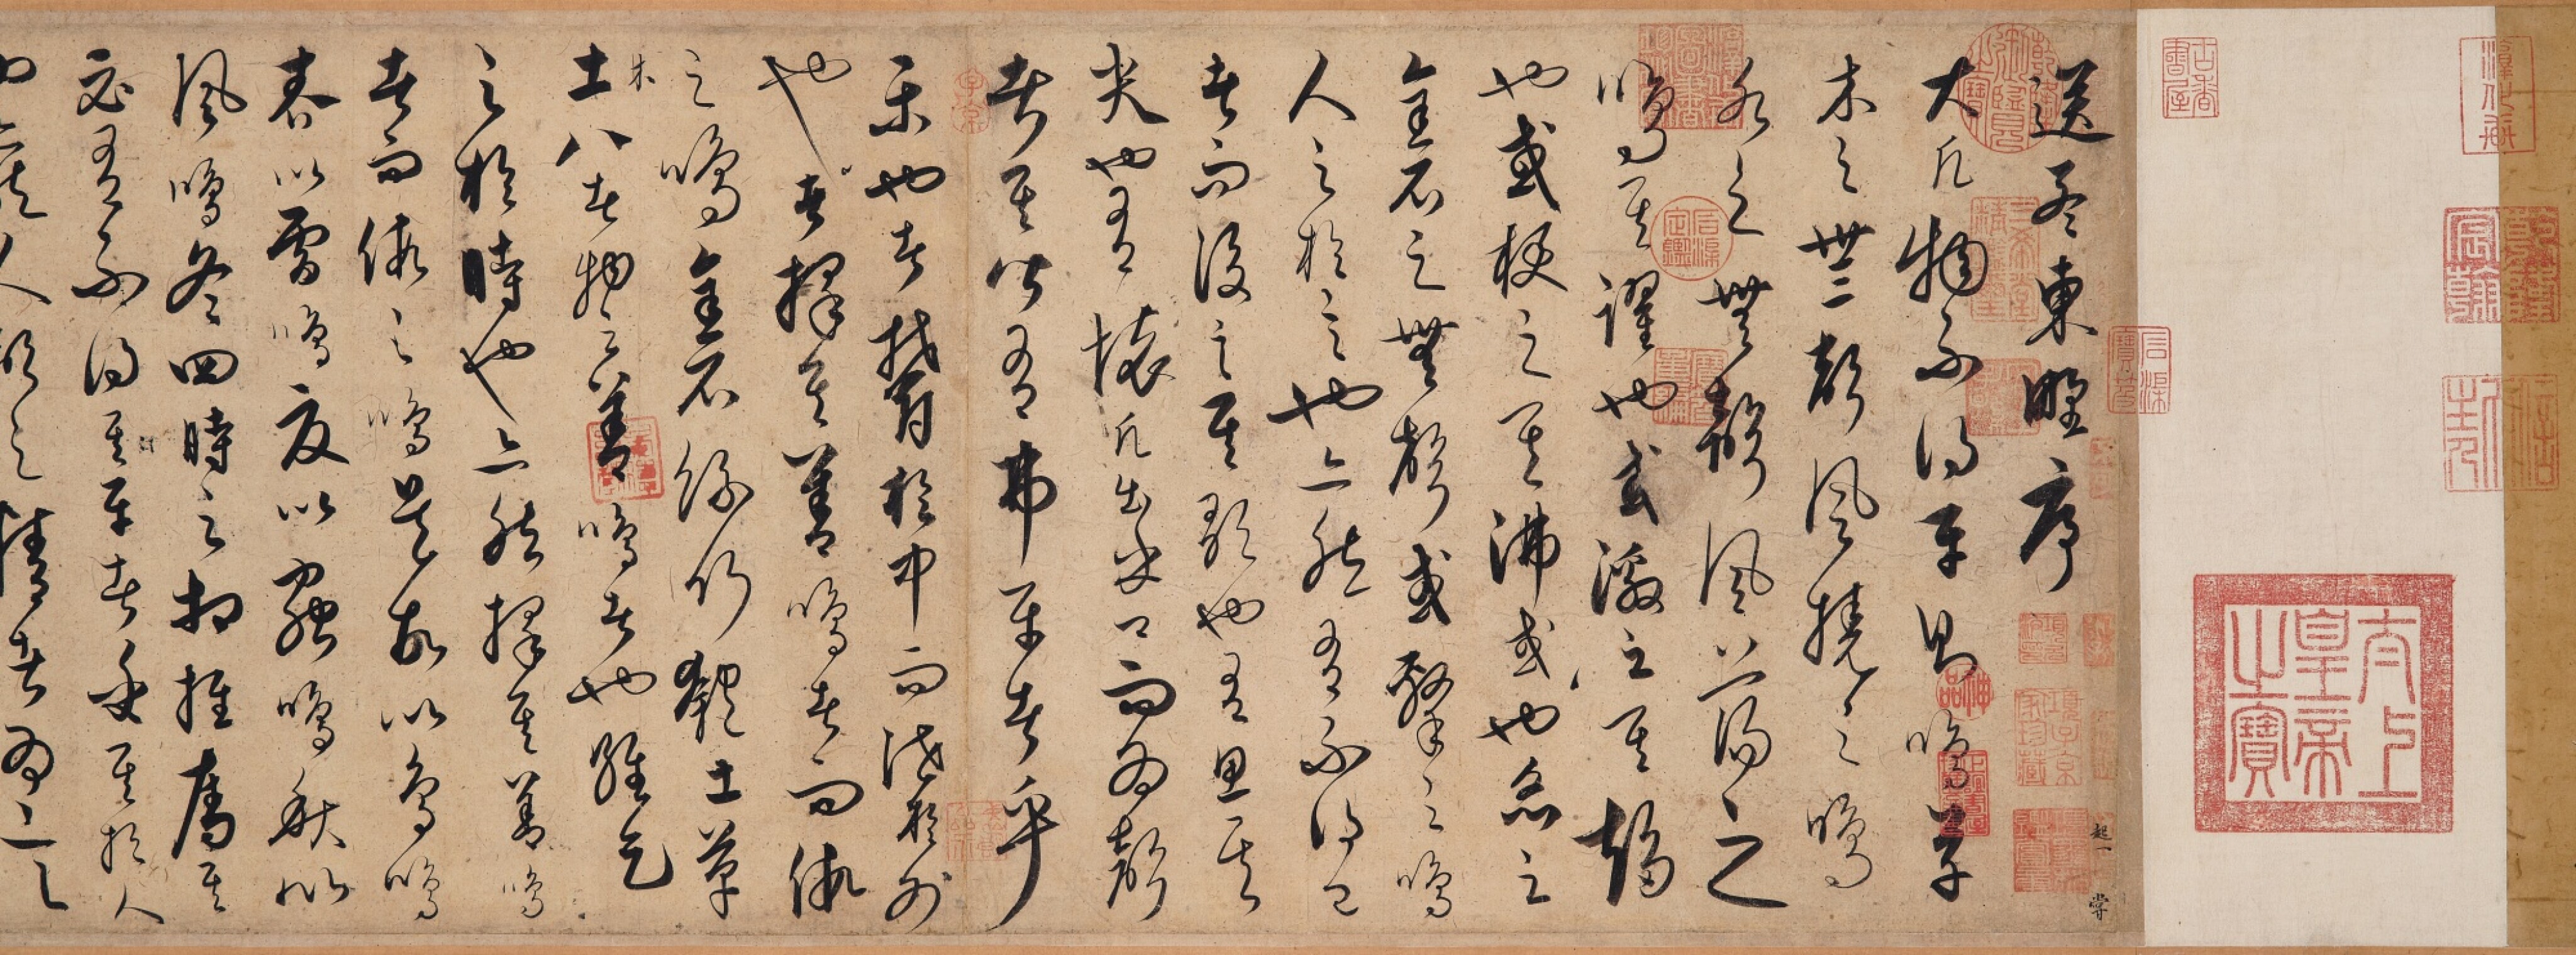 送孟東野序
大凡物不得平則鳴草
木之無聲風撓之鳴
水之無聲風以蕩之
鳴其躍也或激之其趨
也或梗之其沸或也炙之
金石之無聲或擊之鳴
人之於言也亦然有不得已
者而後言其歌也有思其
哭也有懷凡出乎口而為聲
者其皆有弗平者乎
樂也者鬱於中而泄於外
也者擇其善鳴者而假
之鳴金石絲竹匏土革
木
土八者物之善鳴者也維天
之於時也亦然擇其善鳴
者而假之鳴是故以鳥鳴
春以雷鳴夏以蟲鳴秋以
風鳴冬四時之相推奪其
必有不得其平者乎其於人
也亦然人聲之精者為言
太上皇帝之寶
古香書屋
乾隆御覽之寶
神品
子京